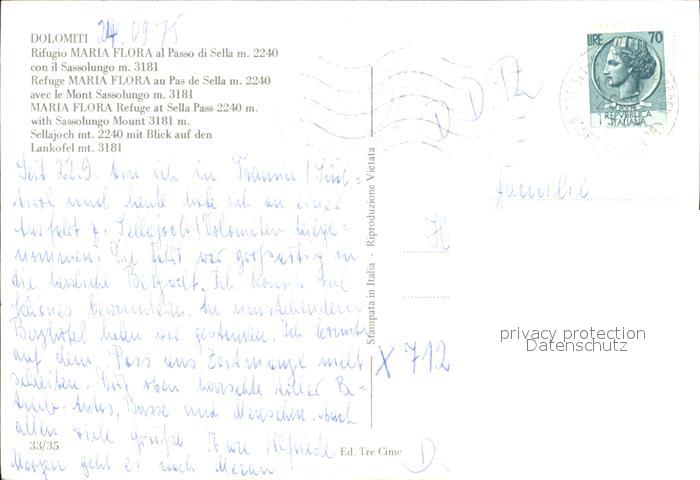 24.09.75
DOLOMITI
Rifugio MARIA FLORA al Passo di Sella m. 2240
con il Sassolungo m. 3181
Refuge MARIA FLORA au Pas de Sella m. 2240
avec le Mont Sassolungo m. 3181
MARIA FLORA Refuge at Sella Pass 2240 m.
with Sassolungo Mount 3181 m.
Sellajoch mt. 2240 mit Blick auf den
Lankofel mt. 3181
Seit 22.9. bin ich in Tramin / Süd-
tirol und heute habe ich an einer
Ausfahrt z. Sellajoch / Dolomiten teilge-
nommen. Die Fahrt war großartig in
die herrliche Bergwelt. Ich konnte viel
Schönes bewundern. Im umstehenden
Berghotel haben wir gestanden. Ich konnte
auf dem Pass aus Zeitmangel nicht
schreiben. Dort oben herrschte toller Be-
trieb. Autos, Busse und Menschen. Euch
allen viele Grüße Eure
Morgen geht es nach Meran
33/35
Ed. Tre Cime
Stampata in Italia - Riproduzione Vietata
DDR
LIRE 70
REPVBBLICA
ITALIANA
Familie
H
X 712
D.
privacy protection
Datenschutz